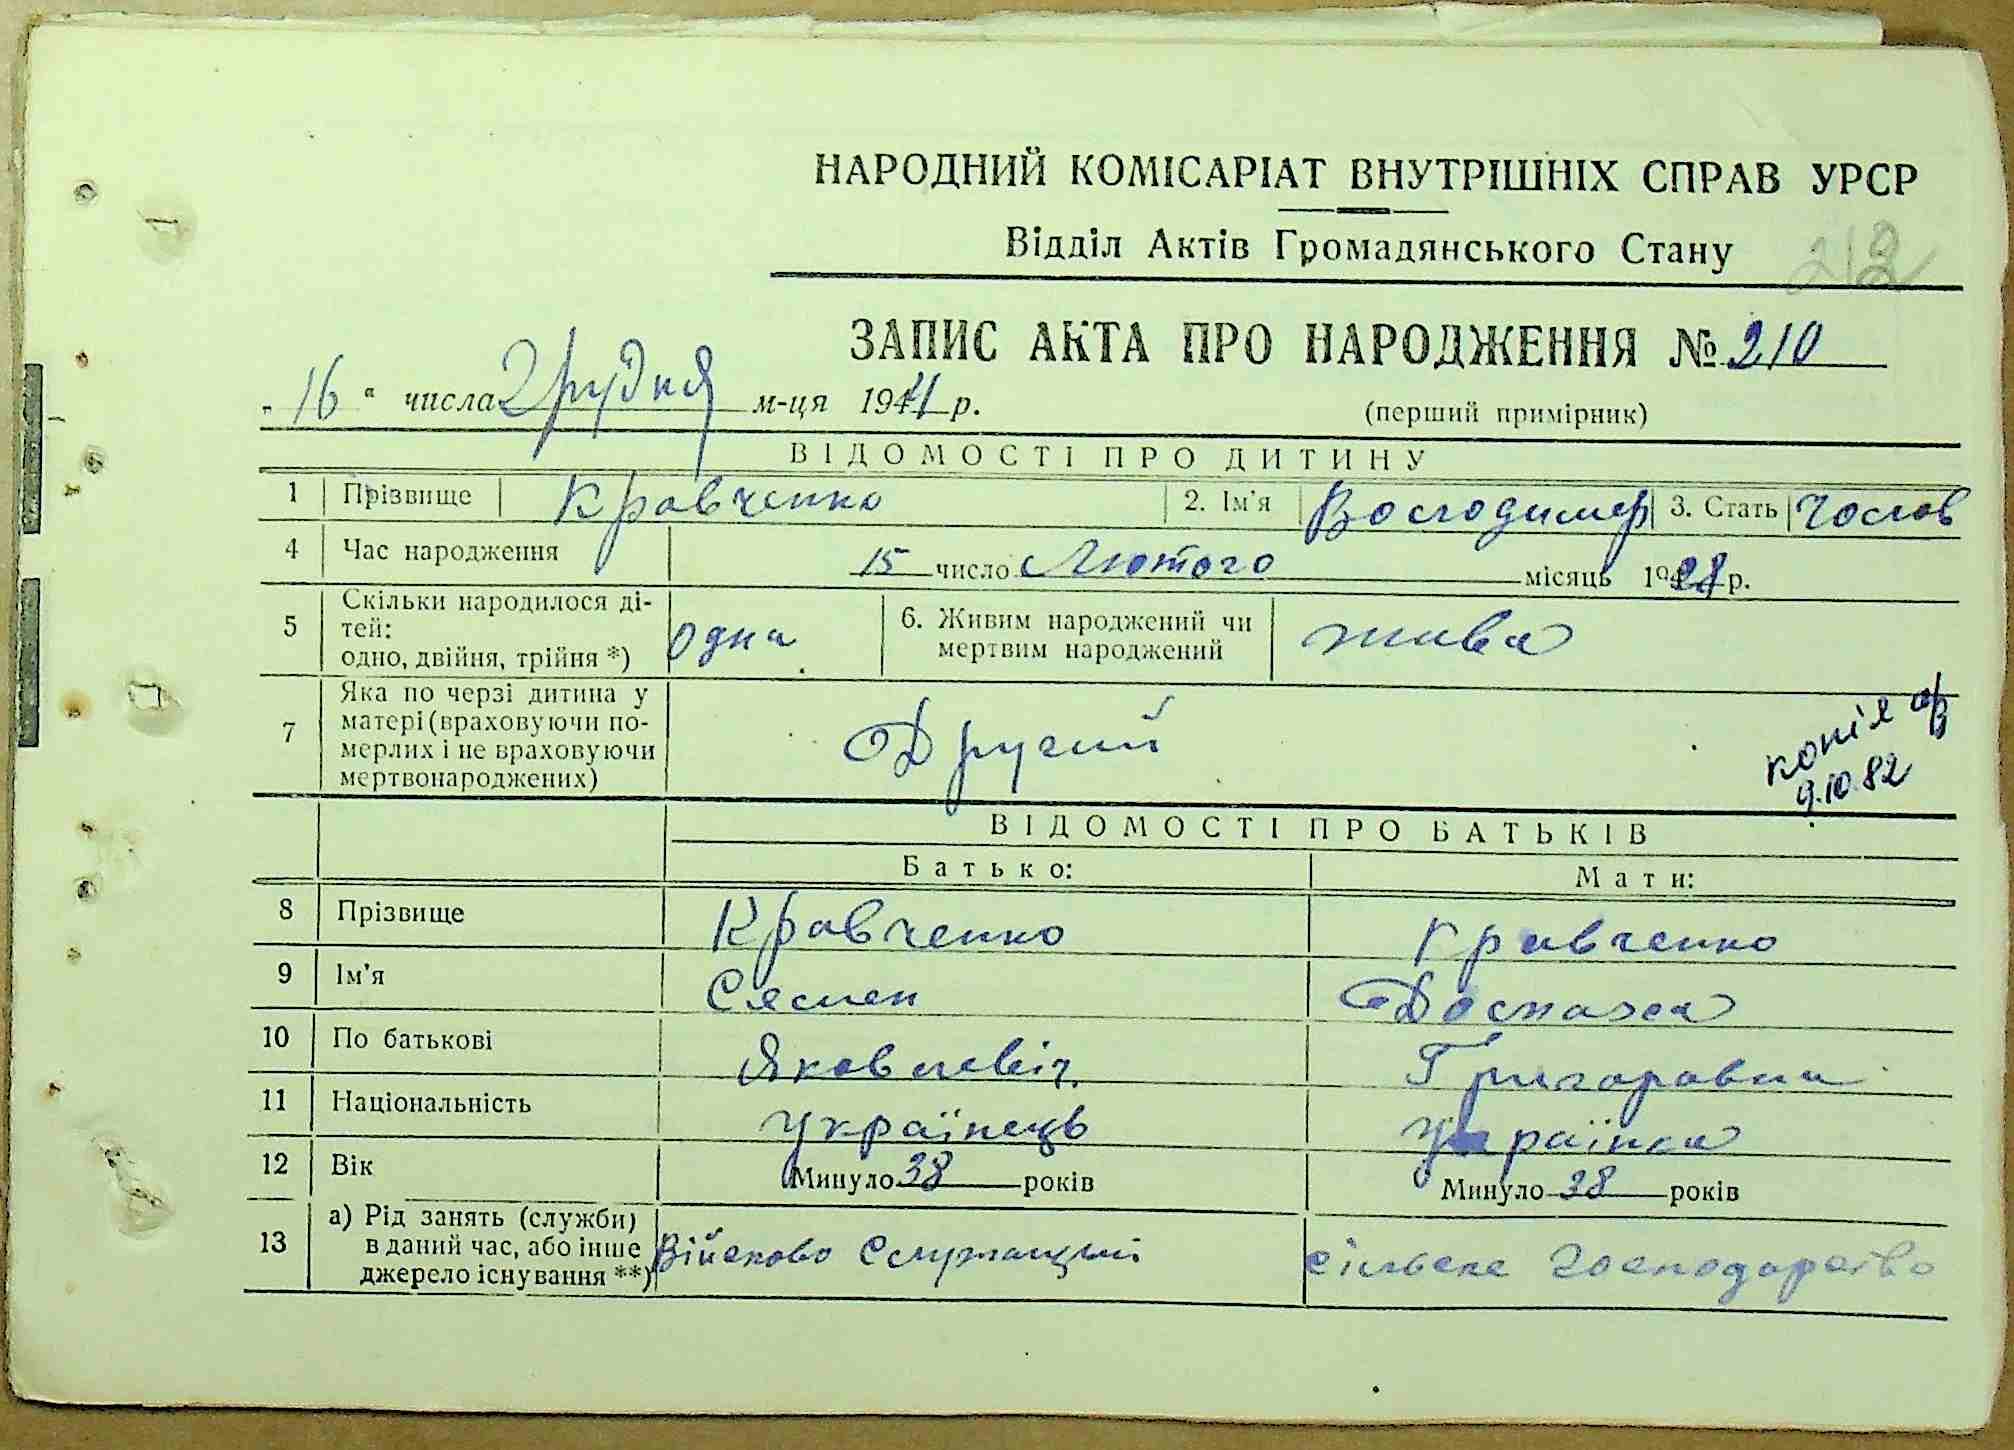 НАРОДНИЙ КОМІСАРІАТ ВНУТРІШНІХ СПРАВ УРСР
Відділ Актів Громадянського Стану 212
ЗАПИС АКТА ПРО НАРОДЖЕННЯ № 210
„16“ числа Грудня м-ця 1944 р. (перший примірник)
ВІДОМОСТІ ПРО ДИТИНУ
1 Прізвище Кравченко 2. Ім'я Володимер 3. Стать Чолов
4 Час народження 15 число Лютого місяць 1928 р.
5 Скільки народилося ді-
тей:
одно, двійня, трійня *) одна 6. Живим народжений чи
мертвим народжений жива
7 Яка по черзі дитина у
матері (враховуючи по-
мерлих і не враховуючи
мертвонароджених) Другий
копія
9.10.82
ВІДОМОСТІ ПРО БАТЬКІВ
Батько: Мати:
8 Прізвище Кравченко Кравченко
9 Ім'я Сямен
10 По батькові Яковлевіч Григоровна
11 Національність Українець Українка
12 Вік Минуло 38 років Минуло 38 років
13 а) Рід занять (служби)
в даний час, або інше
джерело існування **) Військово Служащий сільске господарство